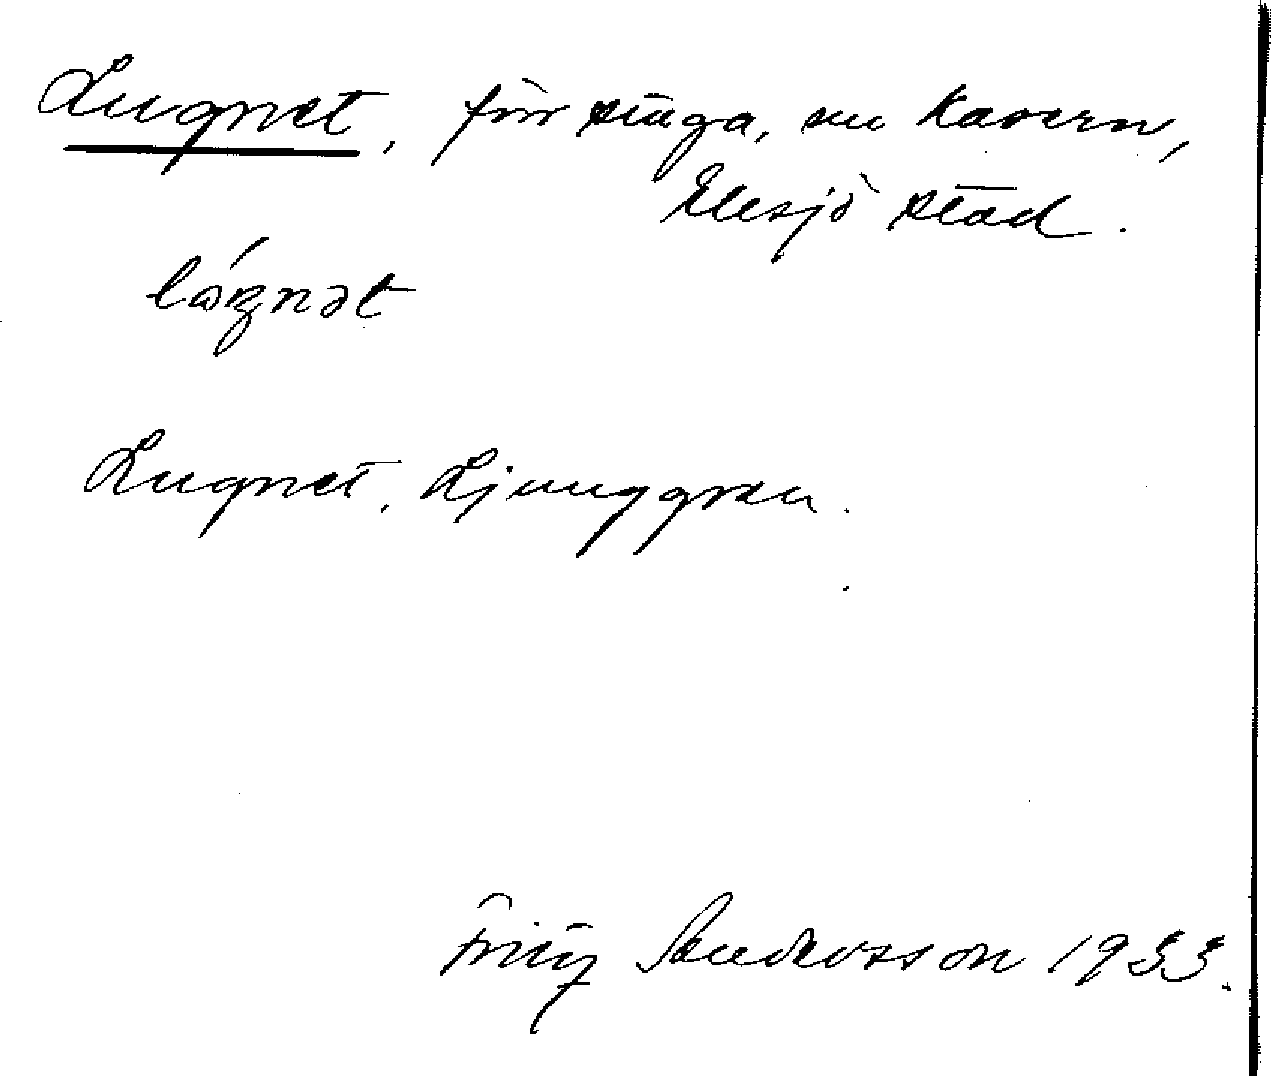 Lugnet, för stuga, nu kasern,
Eksjö stad.
lωgnət
Lugnet. Ljunggren.
Fritz Andersson 1933.